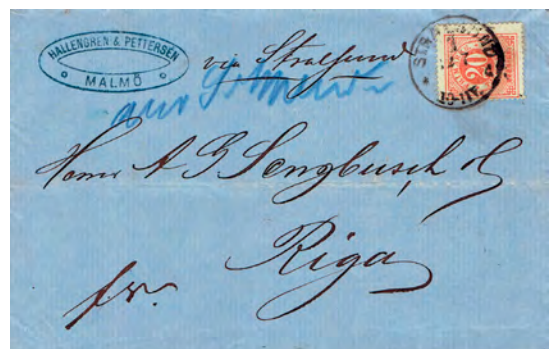 HALLENGREN & PETTERSEN
MALMÖ
via Stralsund
aus
STRALSUND
20
Herrn A G Sengbusch &
Riga
fr.